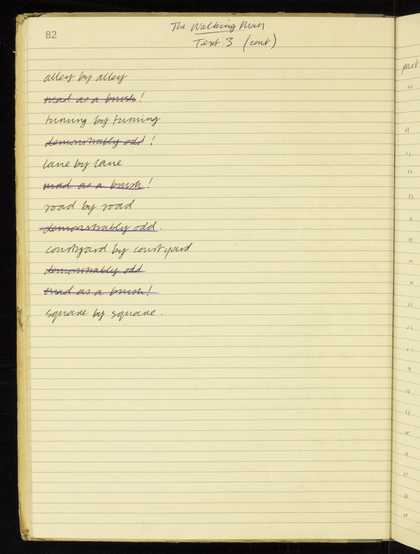 82
The Walking Man
Text 3 (cont)
alley by alley
mad as a brush!
turning by turning
demonstrably odd!
lane by lane
mad as a brush!
road by road
demonstrably odd.
courtyard by courtyard
demonstrably odd
mad as a brush!
square by square.